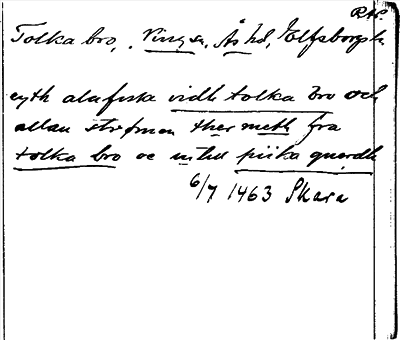 RAP.
Tolka bro, Vings sn, Ås hd, Elfsborgs län
eyth ala fiske vidh tolka bro och
allan strømen ther meth fra
tolka bro oc in til piika querdh
6/7 1463 Skara